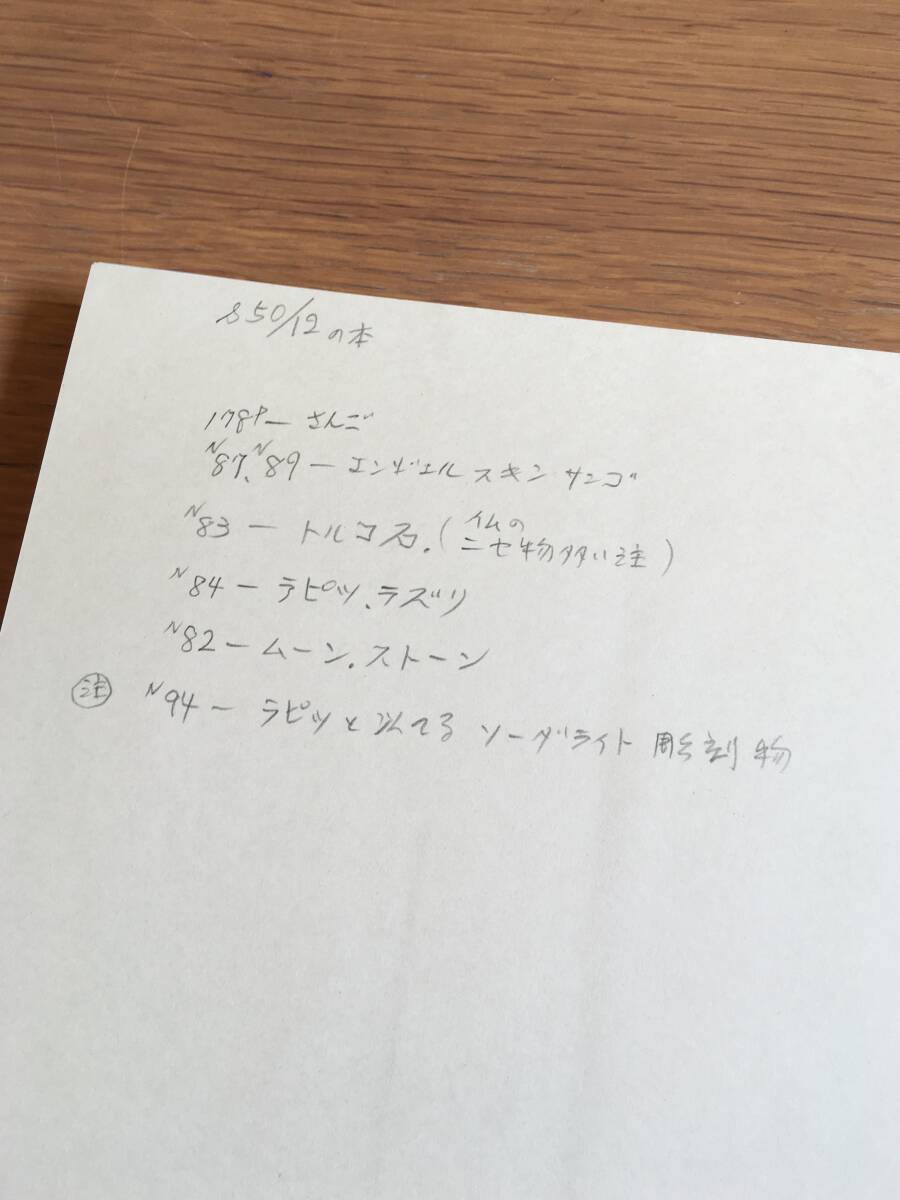 S50/12の本
178P－さんご
N87、N89－エンゼルスキンサンゴ
N83－トルコ石.(仏の
ニセ物多い注)
N84－ラピツ.ラズリ
N82－ムーン.ストーン
注 N94－ラピツと似てるソーダライト彫刻物